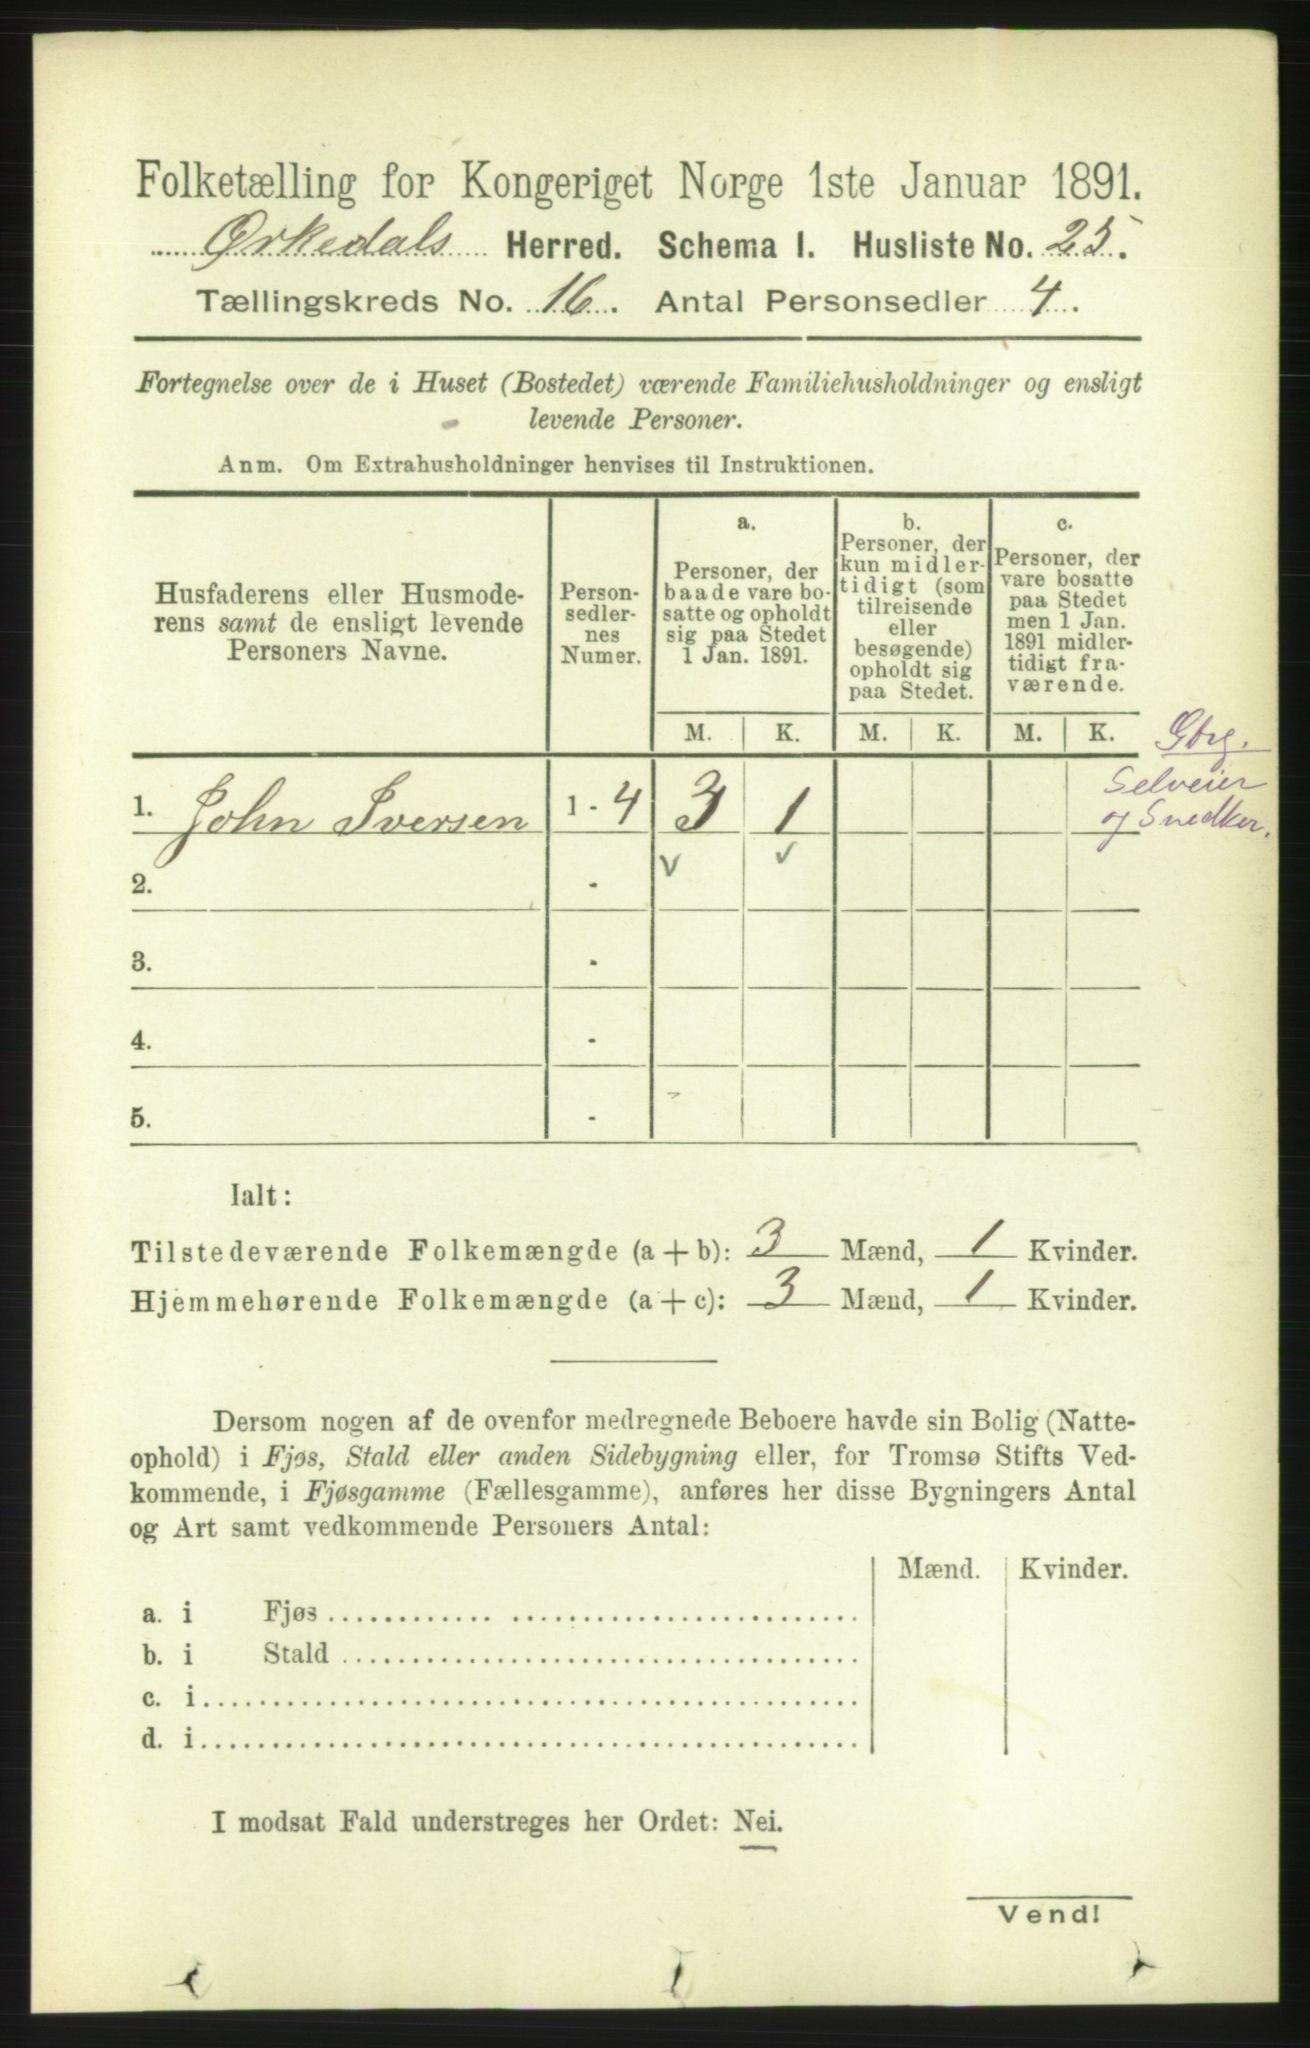 Folketælling for Kongeriget Norge 1ste Januar 1891.
Ørkedals Herred. Schema I. Husliste No. 25.
Tællingskreds No. 16. Antal Personsedler 4.
Fortegnelse over de i Huset (Bostedet) værende Familiehusholdninger og ensligt
levende Personer.
Anm. Om Extrahusholdninger henvises til Instruktionen.
Husfaderens eller Husmode-
rens samt de ensligt levende
Personers Navne.
Person-
sedler-
nes
Numer.
a.
Personer, der
baade vare bo-
satte og opholdt
sig paa Stedet
1 Jan. 1891.
b.
Personer, der
kun midler-
tidigt (som
tilreisende
eller
besøgende)
opholdt sig
paa Stedet.
c.
Personer, der
vare bosatte
paa Stedet
men 1 Jan.
1891 midler-
tidigt fra-
værende.
M. K. M. K. M. K.
Gbrg.
Selveier
og Snedker.
1. John Iversen 1 - 4 3 1
2. -
3. -
4. -
5. -
Ialt:
Tilstedeværende Folkemængde (a + b): 3 Mænd, 1 Kvinder.
Hjemmehørende Folkemængde (a + c): 3 Mænd, 1 Kvinder.
Dersom nogen af de ovenfor medregnede Beboere havde sin Bolig (Natte-
ophold) i Fjøs, Stald eller anden Sidebygning eller, for Tromsø Stifts Ved-
kommende, i Fjøsgamme (Fællesgamme), anføres her disse Bygningers Antal
og Art samt vedkommende Personers Antal:
Mænd. Kvinder.
a. i Fjøs
b. i Stald
c. i
d. i
I modsat Fald understreges her Ordet: Nei.
Vend!